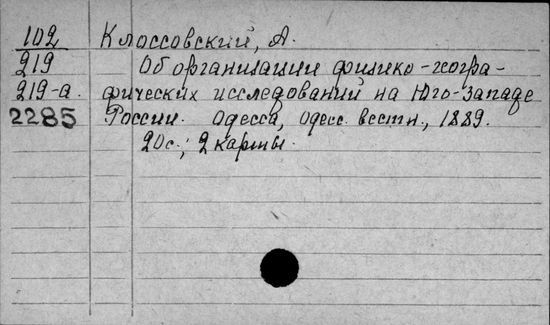 102 Клоссовский, А.
219 Об организации физико-геогра-
219-а. фических исследований на Юго-Западе
2285 России. Одесса, Одесс. вестн., 1889.
20с.; 2 карты.